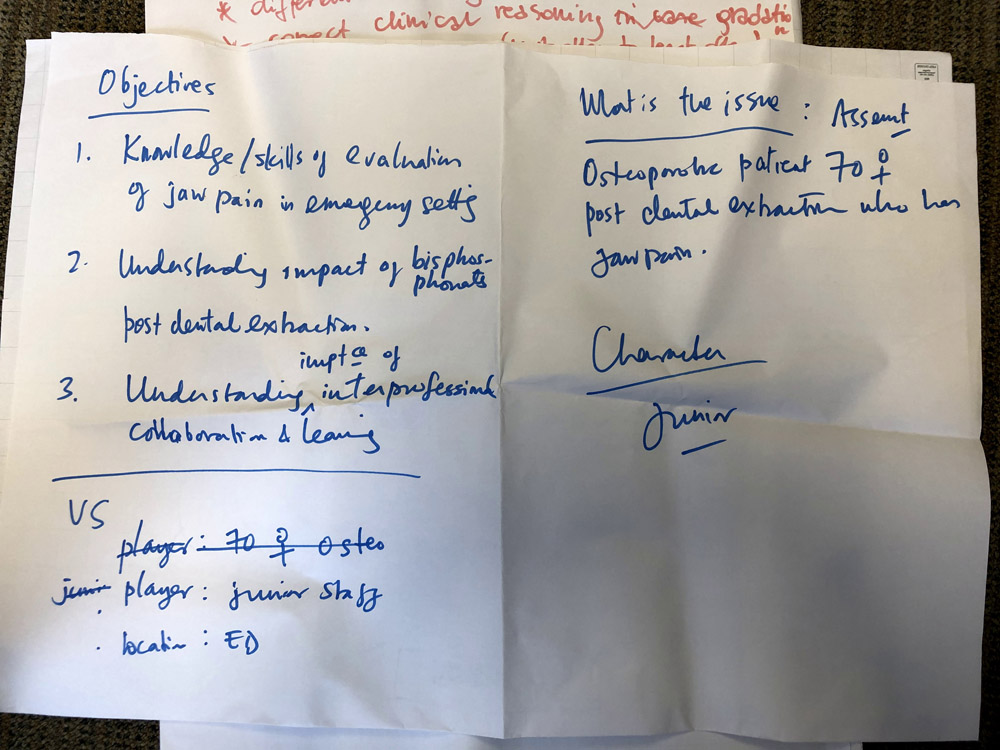 * different
correct clinical reasoning in case gradation
Objectives
1. Knowledge/skills of evaluation
of jaw pain in emergency settig
2. Understanding impact of bisphos-
phonats
post dental extraction.
impt ce of
3. Understanding ^ interprofessional
collaboration & learnig
VS
player: 70 ♀ osteo
junior player: junior staff
· location: ED
What is the issue : Assemt
Osteoporotic patient 70 ♀
post dental extraction who has
jaw pain.
Character
junior